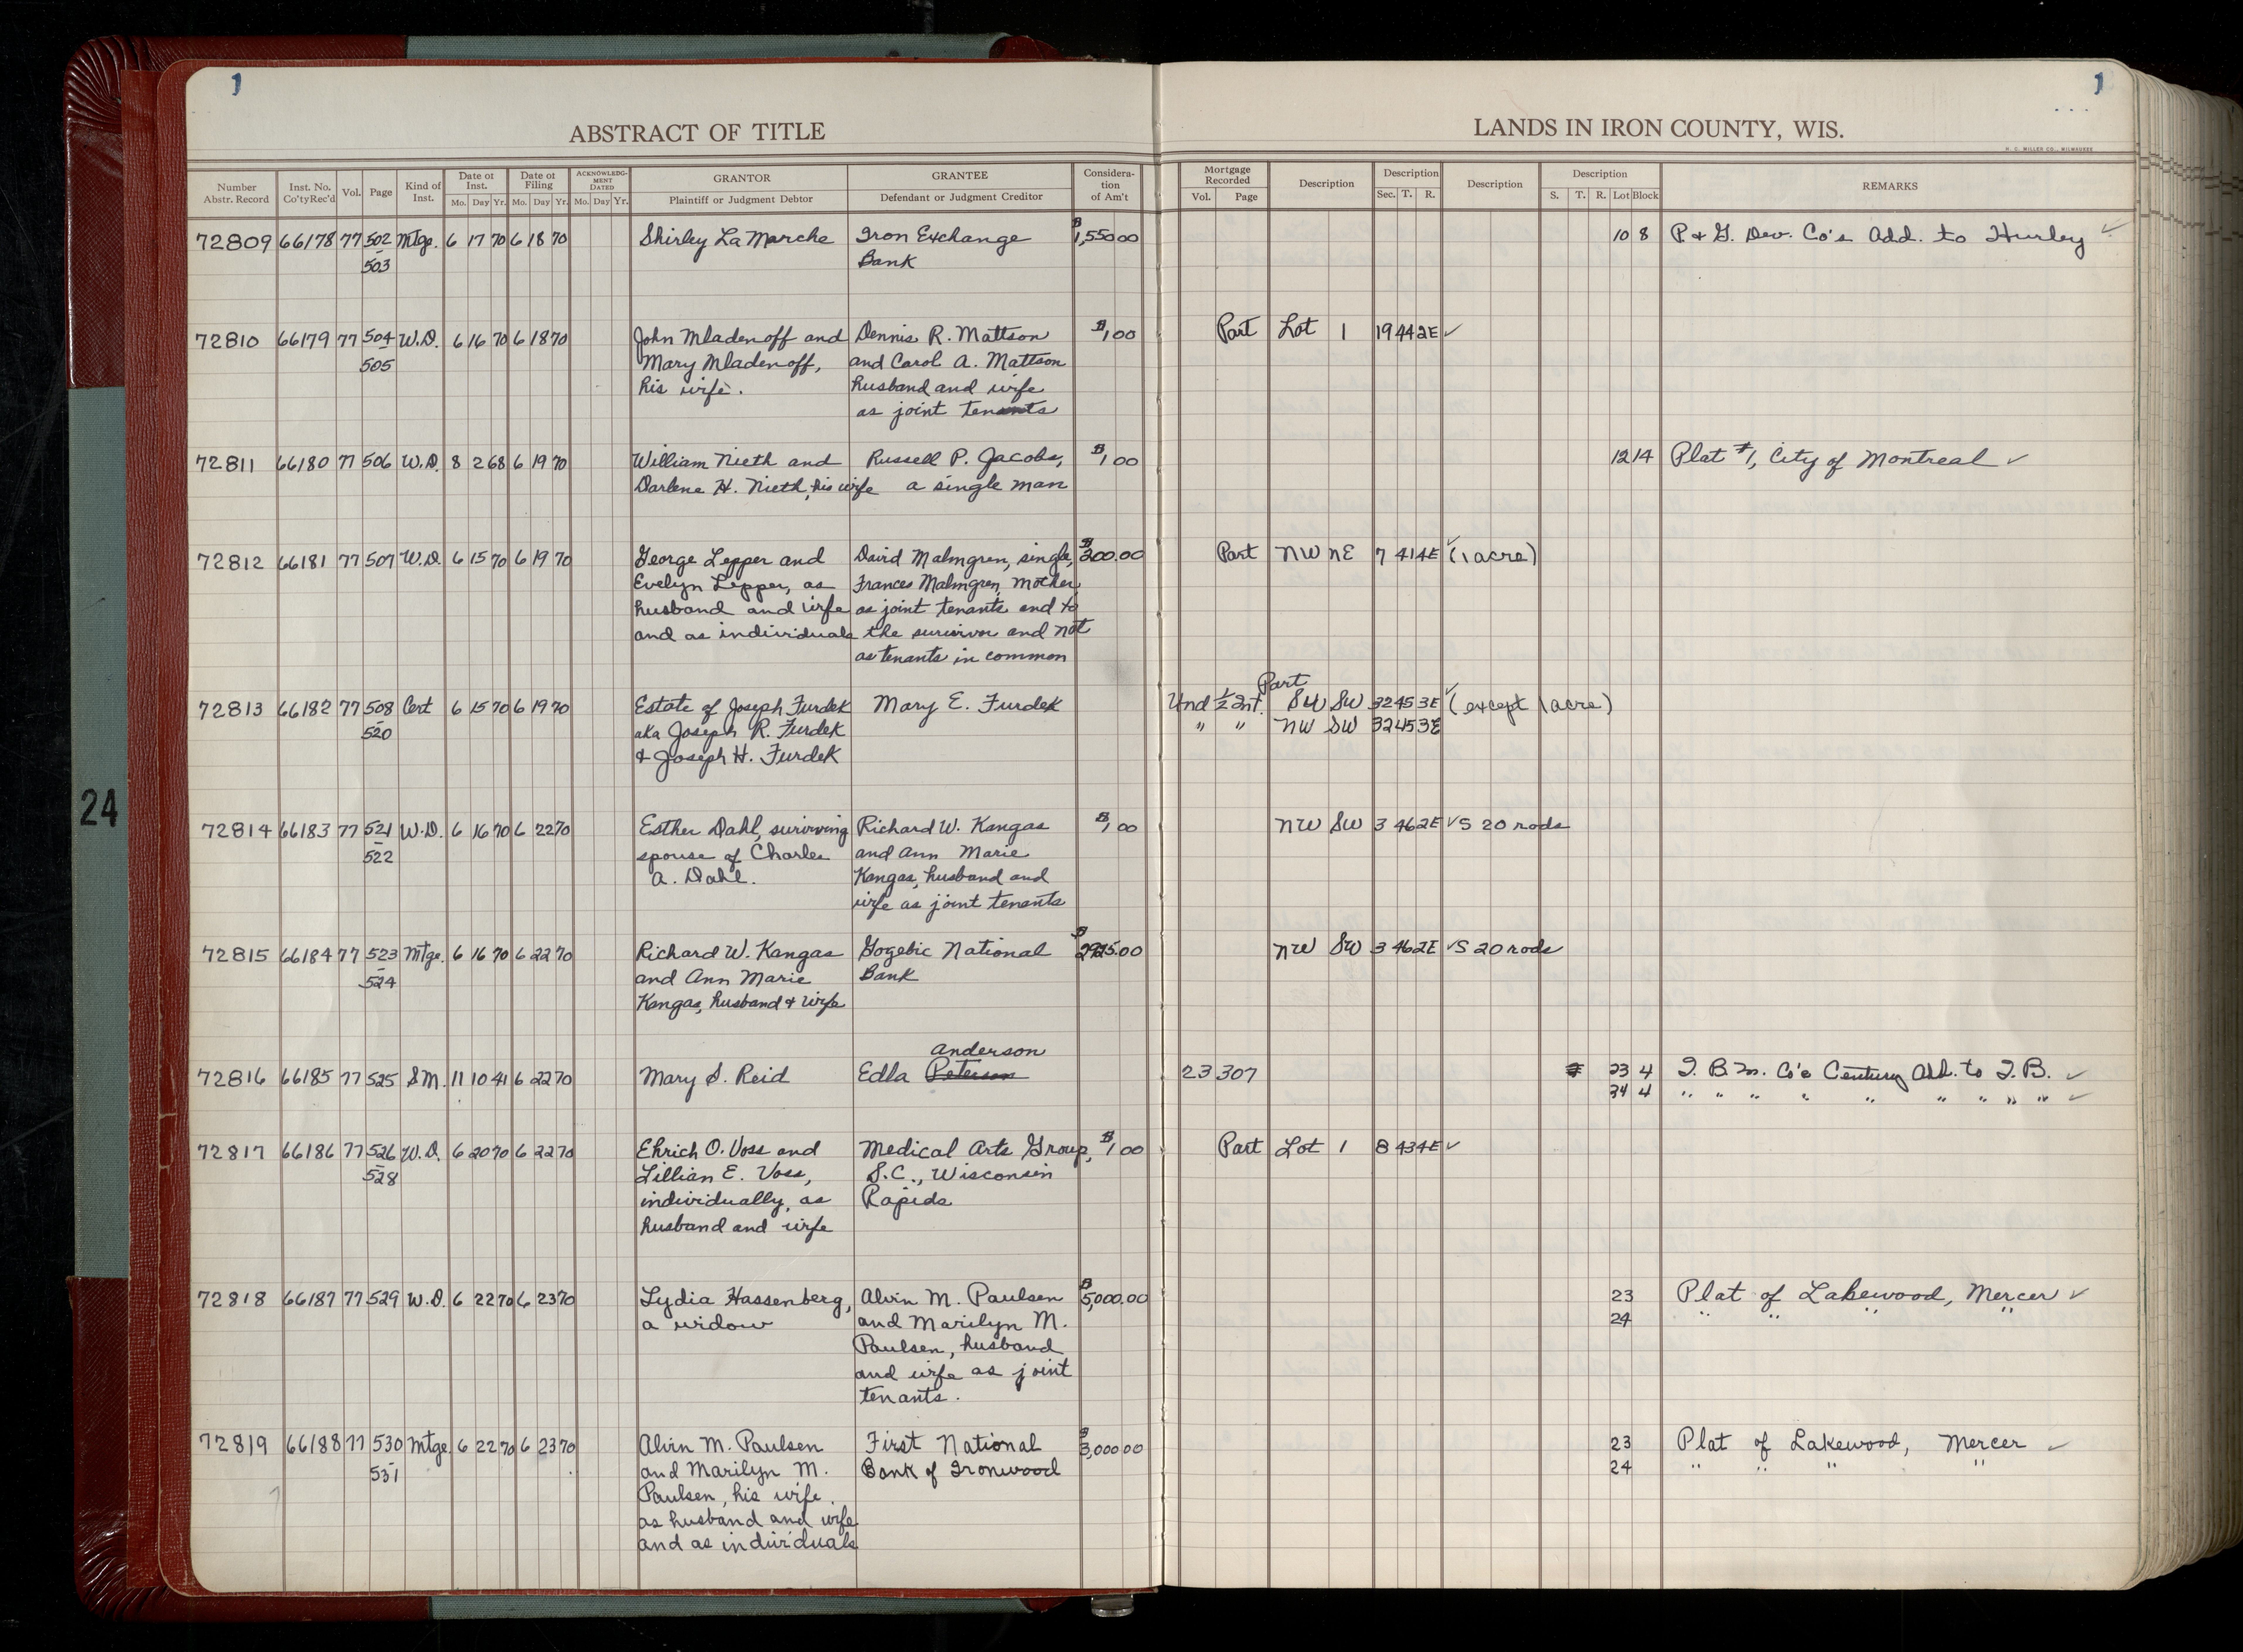 1
1
ABSTRACT OF TITLE
LANDS IN IRON COUNTY, WIS.
H. C. MILLER CO., MILWAUKEE
Number Abstr. Record
Inst. No. Co'ty Rec'd
Vol.
Page
Kind of Inst.
Date of Inst. Mo. Day Yr.
Date of Filing Mo. Day Yr.
ACKNOWLEDGMENT DATED Mo. Day Yr.
GRANTOR Plaintiff or Judgment Debtor
GRANTEE Defendant or Judgment Creditor
Consideration of Am't
Mortgage Recorded Vol. Page
Description
Description Sec. T. R.
Description
Description S. T. R. Lot Block
REMARKS
72809 66178 77 502 Mtge. 6 17 70 6 18 70 Shirley LaMarche Iron Exchange $1,550 00 10 8 P & G. Dev. Co's Add. to Hurley ✓
503 Bank
72810 66179 77 504 W.D. 6 16 70 6 18 70 John Mladenoff and Dennis R. Mattson $1 00 Part Lot 1 19 44 2E ✓
505 Mary Mladenoff, and Carol A. Mattson
his wife. husband and wife
as joint tenants
72811 66180 77 506 W.D. 8 2 68 6 19 70 William Nieth and Russell P. Jacobs, $1 00 12 14 Plat #1, City of Montreal ✓
Darlene H. Nieth, his wife a single man
72812 66181 77 507 W.D. 6 15 70 6 19 70 George Lepper and David Malmgren, single, $300.00 Part NW NE 7 41 4E ✓ (1 acre)
Evelyn Lepper, as Frances Malmgren, mother,
husband and wife as joint tenants and to
and as individuals the survivor and not
as tenants in common
Part
72813 66182 77 508 Cert 6 15 70 6 19 70 Estate of Joseph Furdek Mary E. Furdek Und ½ Int. SW SW 32 45 3E ✓ (except 1 acre)
520 aka Joseph R. Furdek " " NW SW 32 45 3E
& Joseph H. Furdek
72814 66183 77 521 W.D. 6 16 70 6 22 70 Esther Dahl, surviving Richard W. Kangas $1 00 NW SW 3 46 2E ✓ S 20 rods
522 spouse of Charles and Ann Marie
A. Dahl. Kangas, husband and
wife as joint tenants
72815 66184 77 523 Mtge. 6 16 70 6 22 70 Richard W. Kangas Gogebic National NW SW 3 46 2E ✓ S 20 rods
524 and Ann Marie Bank
Kangas, husband & wife
Anderson
72816 66185 77 525 SM. 11 10 41 6 22 70 Mary S. Reid Edla Peterson 23 307 23 4 I. B. M. Co's Century Add. to I.B. ✓
24 4 " " " " " " " " " ✓
72817 66186 77 526 W.D. 6 20 70 6 22 70 Ehrich O. Voss and Medical Arts Group, $1 00 Part Lot 1 8 43 4E ✓
528 Lillian E. Voss, S.C., Wisconsin
individually, as Rapids
husband and wife
72818 66187 77 529 W.D. 6 22 70 6 23 70 Lydia Hassenberg, Alvin M. Paulsen $5,000.00 23 Plat of Lakewood, Mercer ✓
a widow and Marilyn M. 24 " " " "
Paulsen, husband
and wife as joint
tenants.
72819 66188 77 530 Mtge. 6 22 70 6 23 70 Alvin M. Paulsen First National $3,000 00 23 Plat of Lakewood, Mercer ✓
531 and Marilyn M. Bank of Ironwood 24 " " " "
Paulsen, his wife.
as husband and wife
and as individuals
24